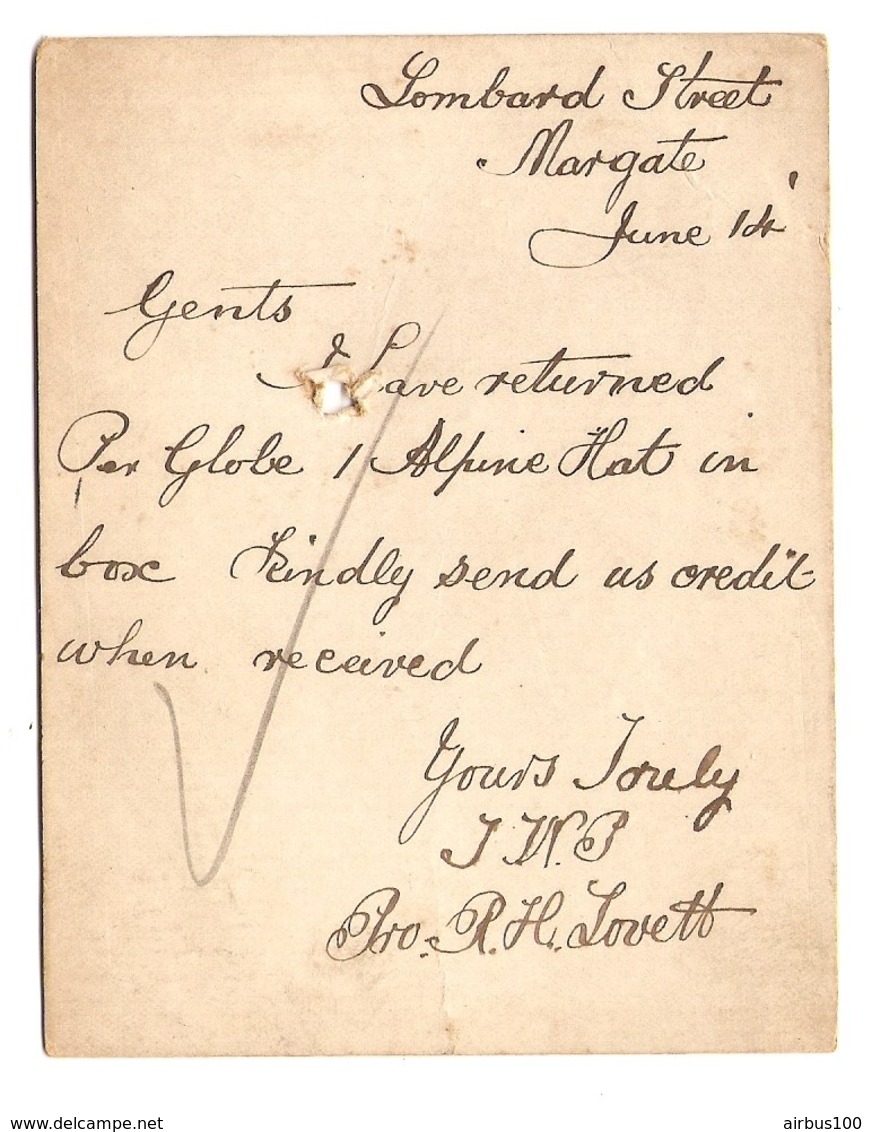 Lombard Street
Margate
June 14
Gents
I have returned
Per Globe 1 Alpine Hat in
box Kindly send us credit
when received
Yours Truly
J W. P
Pro. R. H. Lovett
www.delcampe.net
airbus100